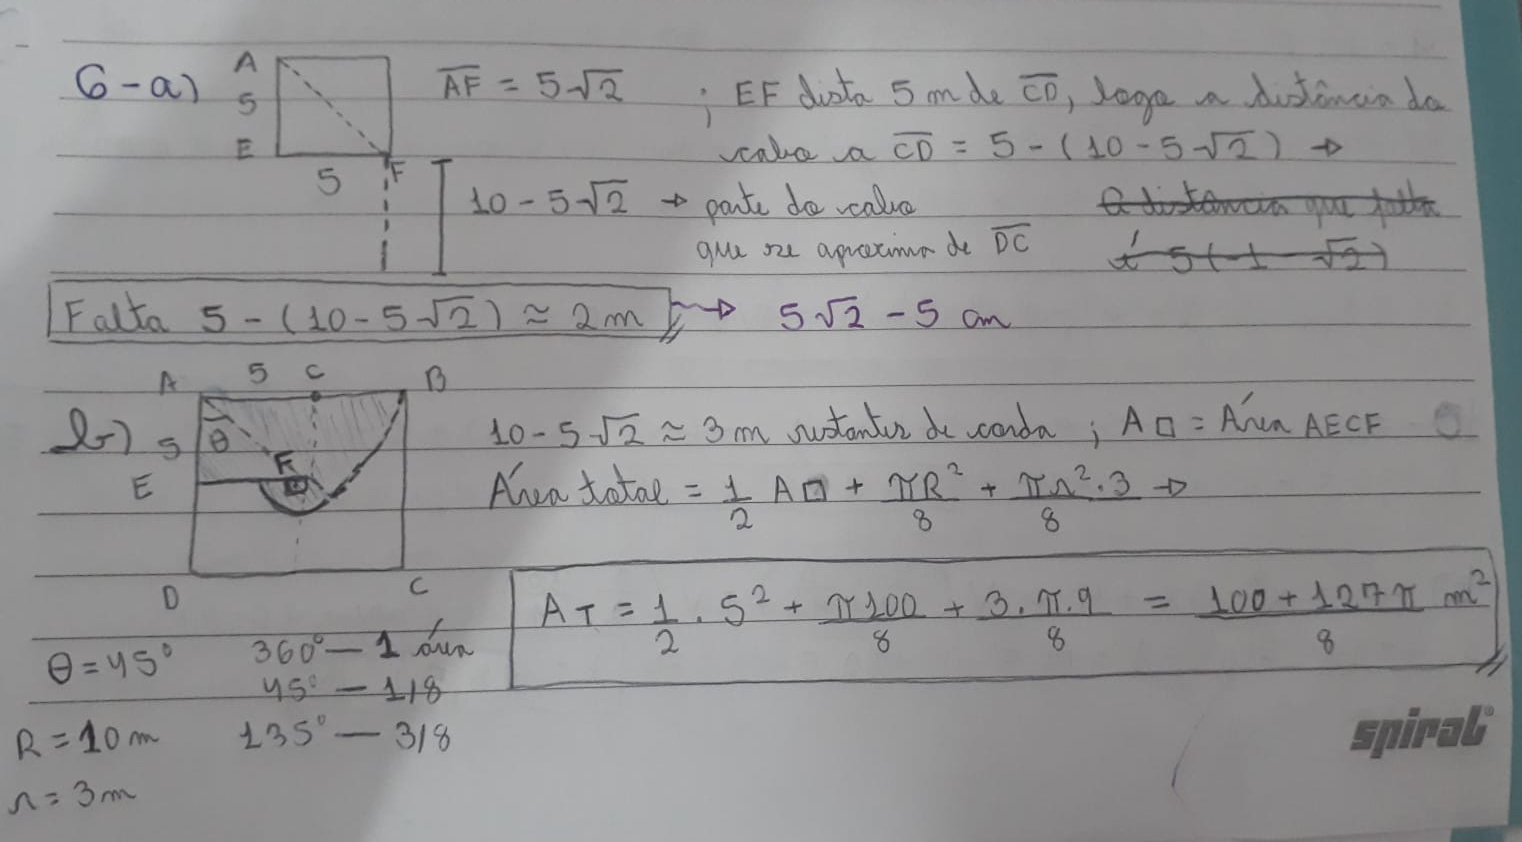 6-a) A 5 E 5 F
AF = 5√2 ; EF dista 5 m de CD, logo a distância do
cabo a CD = 5 - (10 - 5√2) →
10 - 5√2 → parte do cabo
que se aproxima de DC
A distância que falta
é 5(1 √2)
Falta 5 - (10 - 5√2) ≈ 2m → 5√2 - 5 cm
b) A 5 C B
5 θ F
E
D C
10 - 5√2 ≈ 3 m restantes de corda ; A□ = Área AECF
Área total = 1/2 A□ + πR²/8 + πr².3/8 →
AT = 1/2 . 5² + π100/8 + 3.π.9/8 = 100 + 127π/8 m²
θ = 45° 360° — 1 área
45° — 1/8
R = 10 m 135° — 3/8
r = 3m
spiral